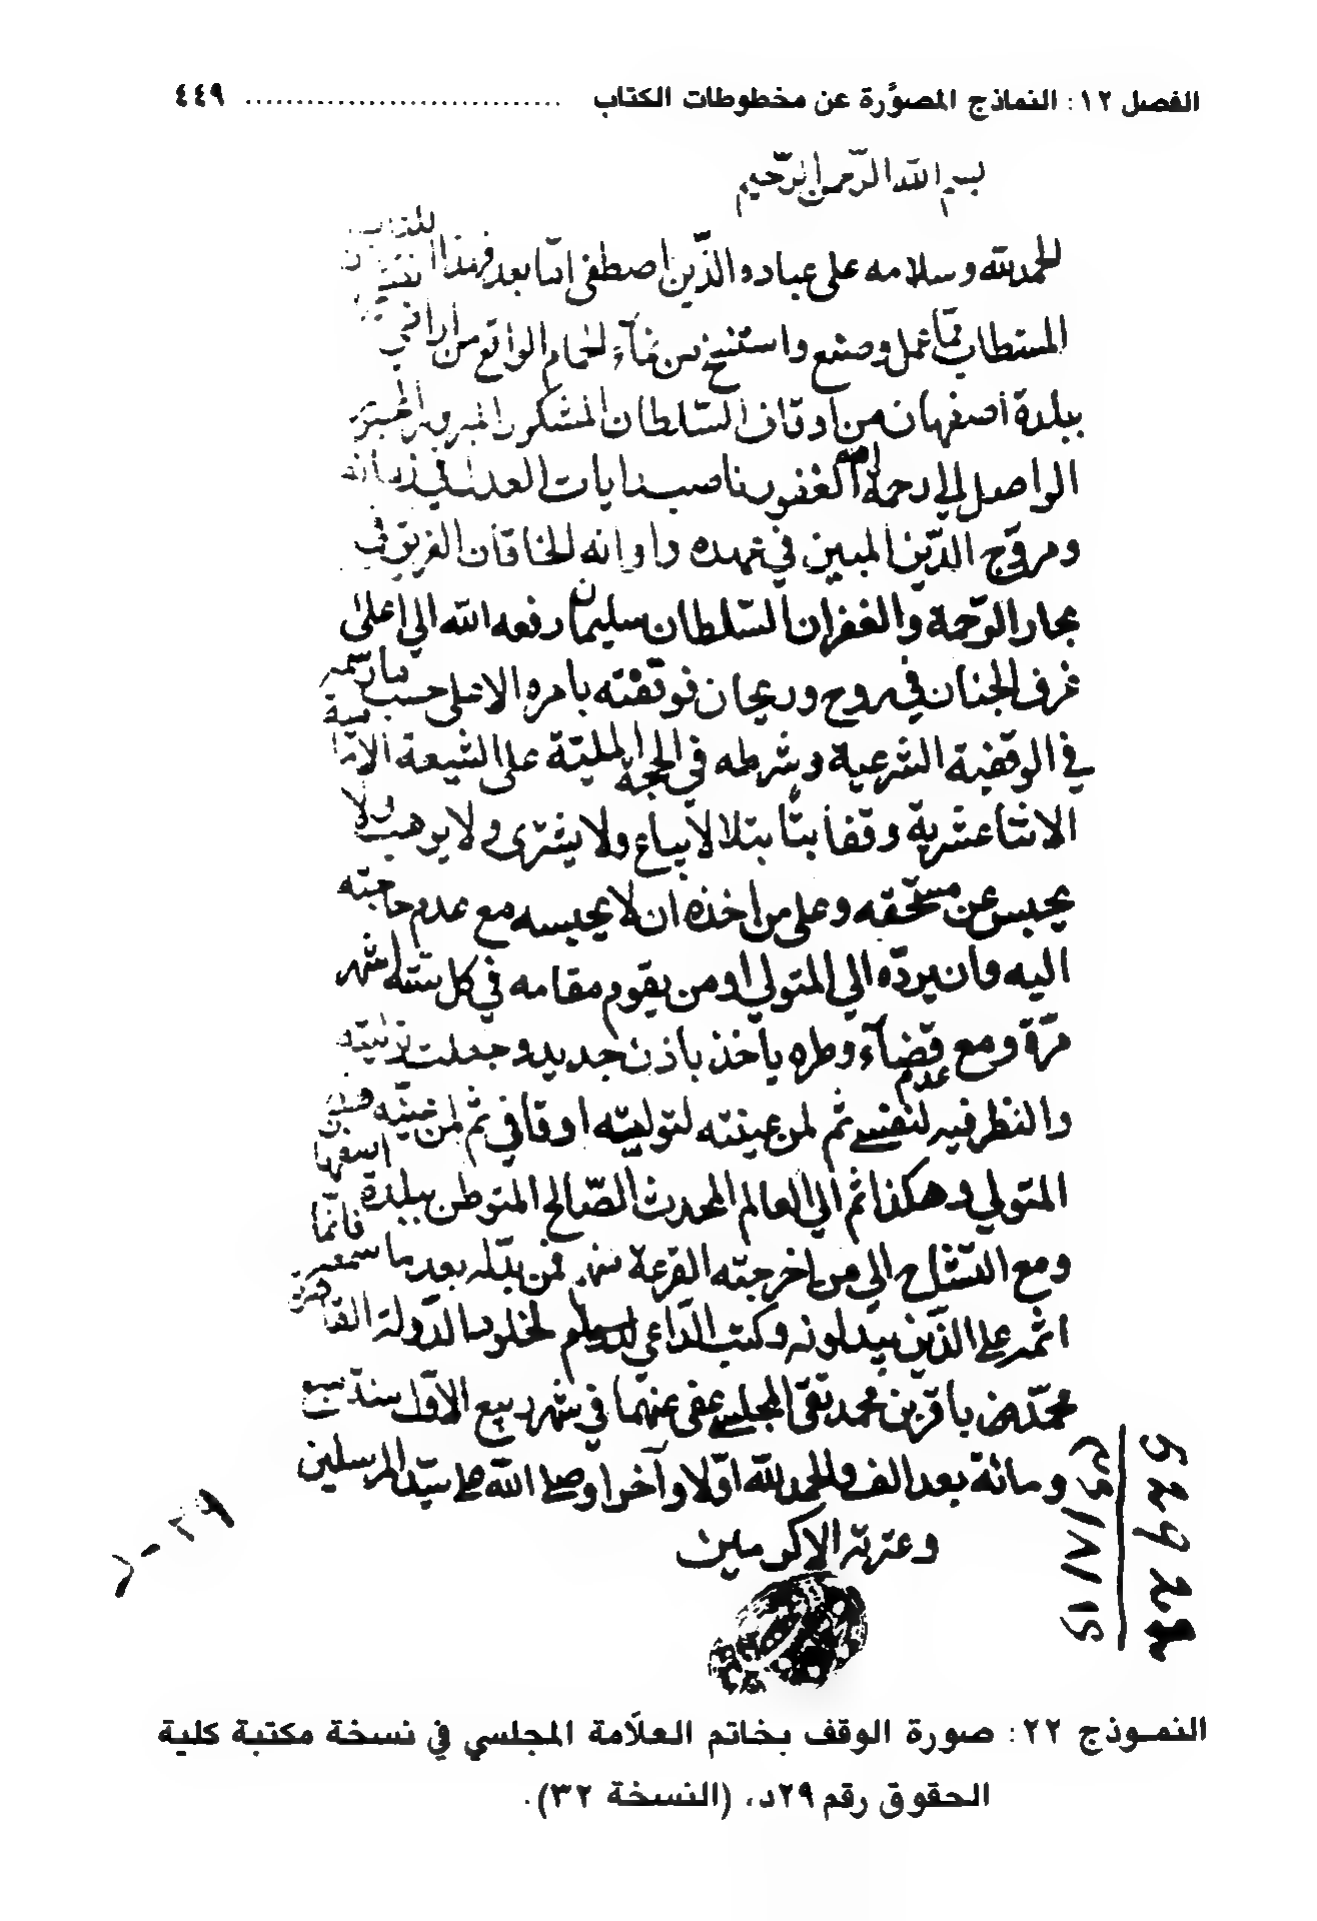 الفصل ١٢: النماذج المصوَّرة عن مخطوطات الكتاب ............................... ٤٤٩
بسم الله الرّحمن الرّحيم
الحمد لله وسلامه على عباده الّذين اصطفى امّا بعد فهذا
المستطاب ممّا عمل وصنع واستنسخ من نمآء الحمام الواقع من اراضي
ببلدة اصفهان من اوقاف السّلطان المشكور المبرور
الواصل الى رحمة الله الغفور ناصب رايات العدل في زمانه
ومروّج الدّين المبين في عهده واوانه الخاقان الغريق في
بحار الرّحمة والغفران السّلطان سليمان رفعه الله الى اعلى
غرف الجنان في روح وريحان فوقفته بامره الاعلى حسب ما رسمه
في الوقفية الشرعية وشرطه في الحجة المليّة على الشيعة الاماميّة
الاثنا عشرية وقفاً بتّا بتلا لا يباع ولا يشترى ولا يوهب ولا
يحبس عن مستحقه وعلى من اخذه ان لا يحبسه مع عدم حاجته
اليه وان يردّه الى المتولي او من يقوم مقامه في كل ستّة اشهر
مرّة ومع عدم قضآء وطره ياخذ باذن جديد وجعلت توليته
والنظر فيه لنفسي ثم لمن عينته لتولية اوقافي ثم لمن عيّنه
المتولي وهكذا ثم الى العالم المحدث الصّالح المتوطن ببلدة اصفهان
ومع التشاح الى من اخرجته القرعة منهم فمن بدّله بعد ما سمعه فانّما
اثمه على الذين يبدّلونه وكتب الدّاعي لدوام لخلود الدّولة القاهرة
محمّد باقر بن محمد تقى المجلسي عفى عنهما في شهر ربيع الاوّل سنة سبع
ومائة بعد الف والحمد لله اوّلا وآخرا وصلى الله على سيّد المرسلين
وعترته الاكرمين
٢٩ - د
النمـوذج ٢٢: صورة الوقف بخاتم العلاّمة المجلسي في نسخة مكتبة كلية
الحقوق رقم ٢٩د، (النسخة ٣٢).